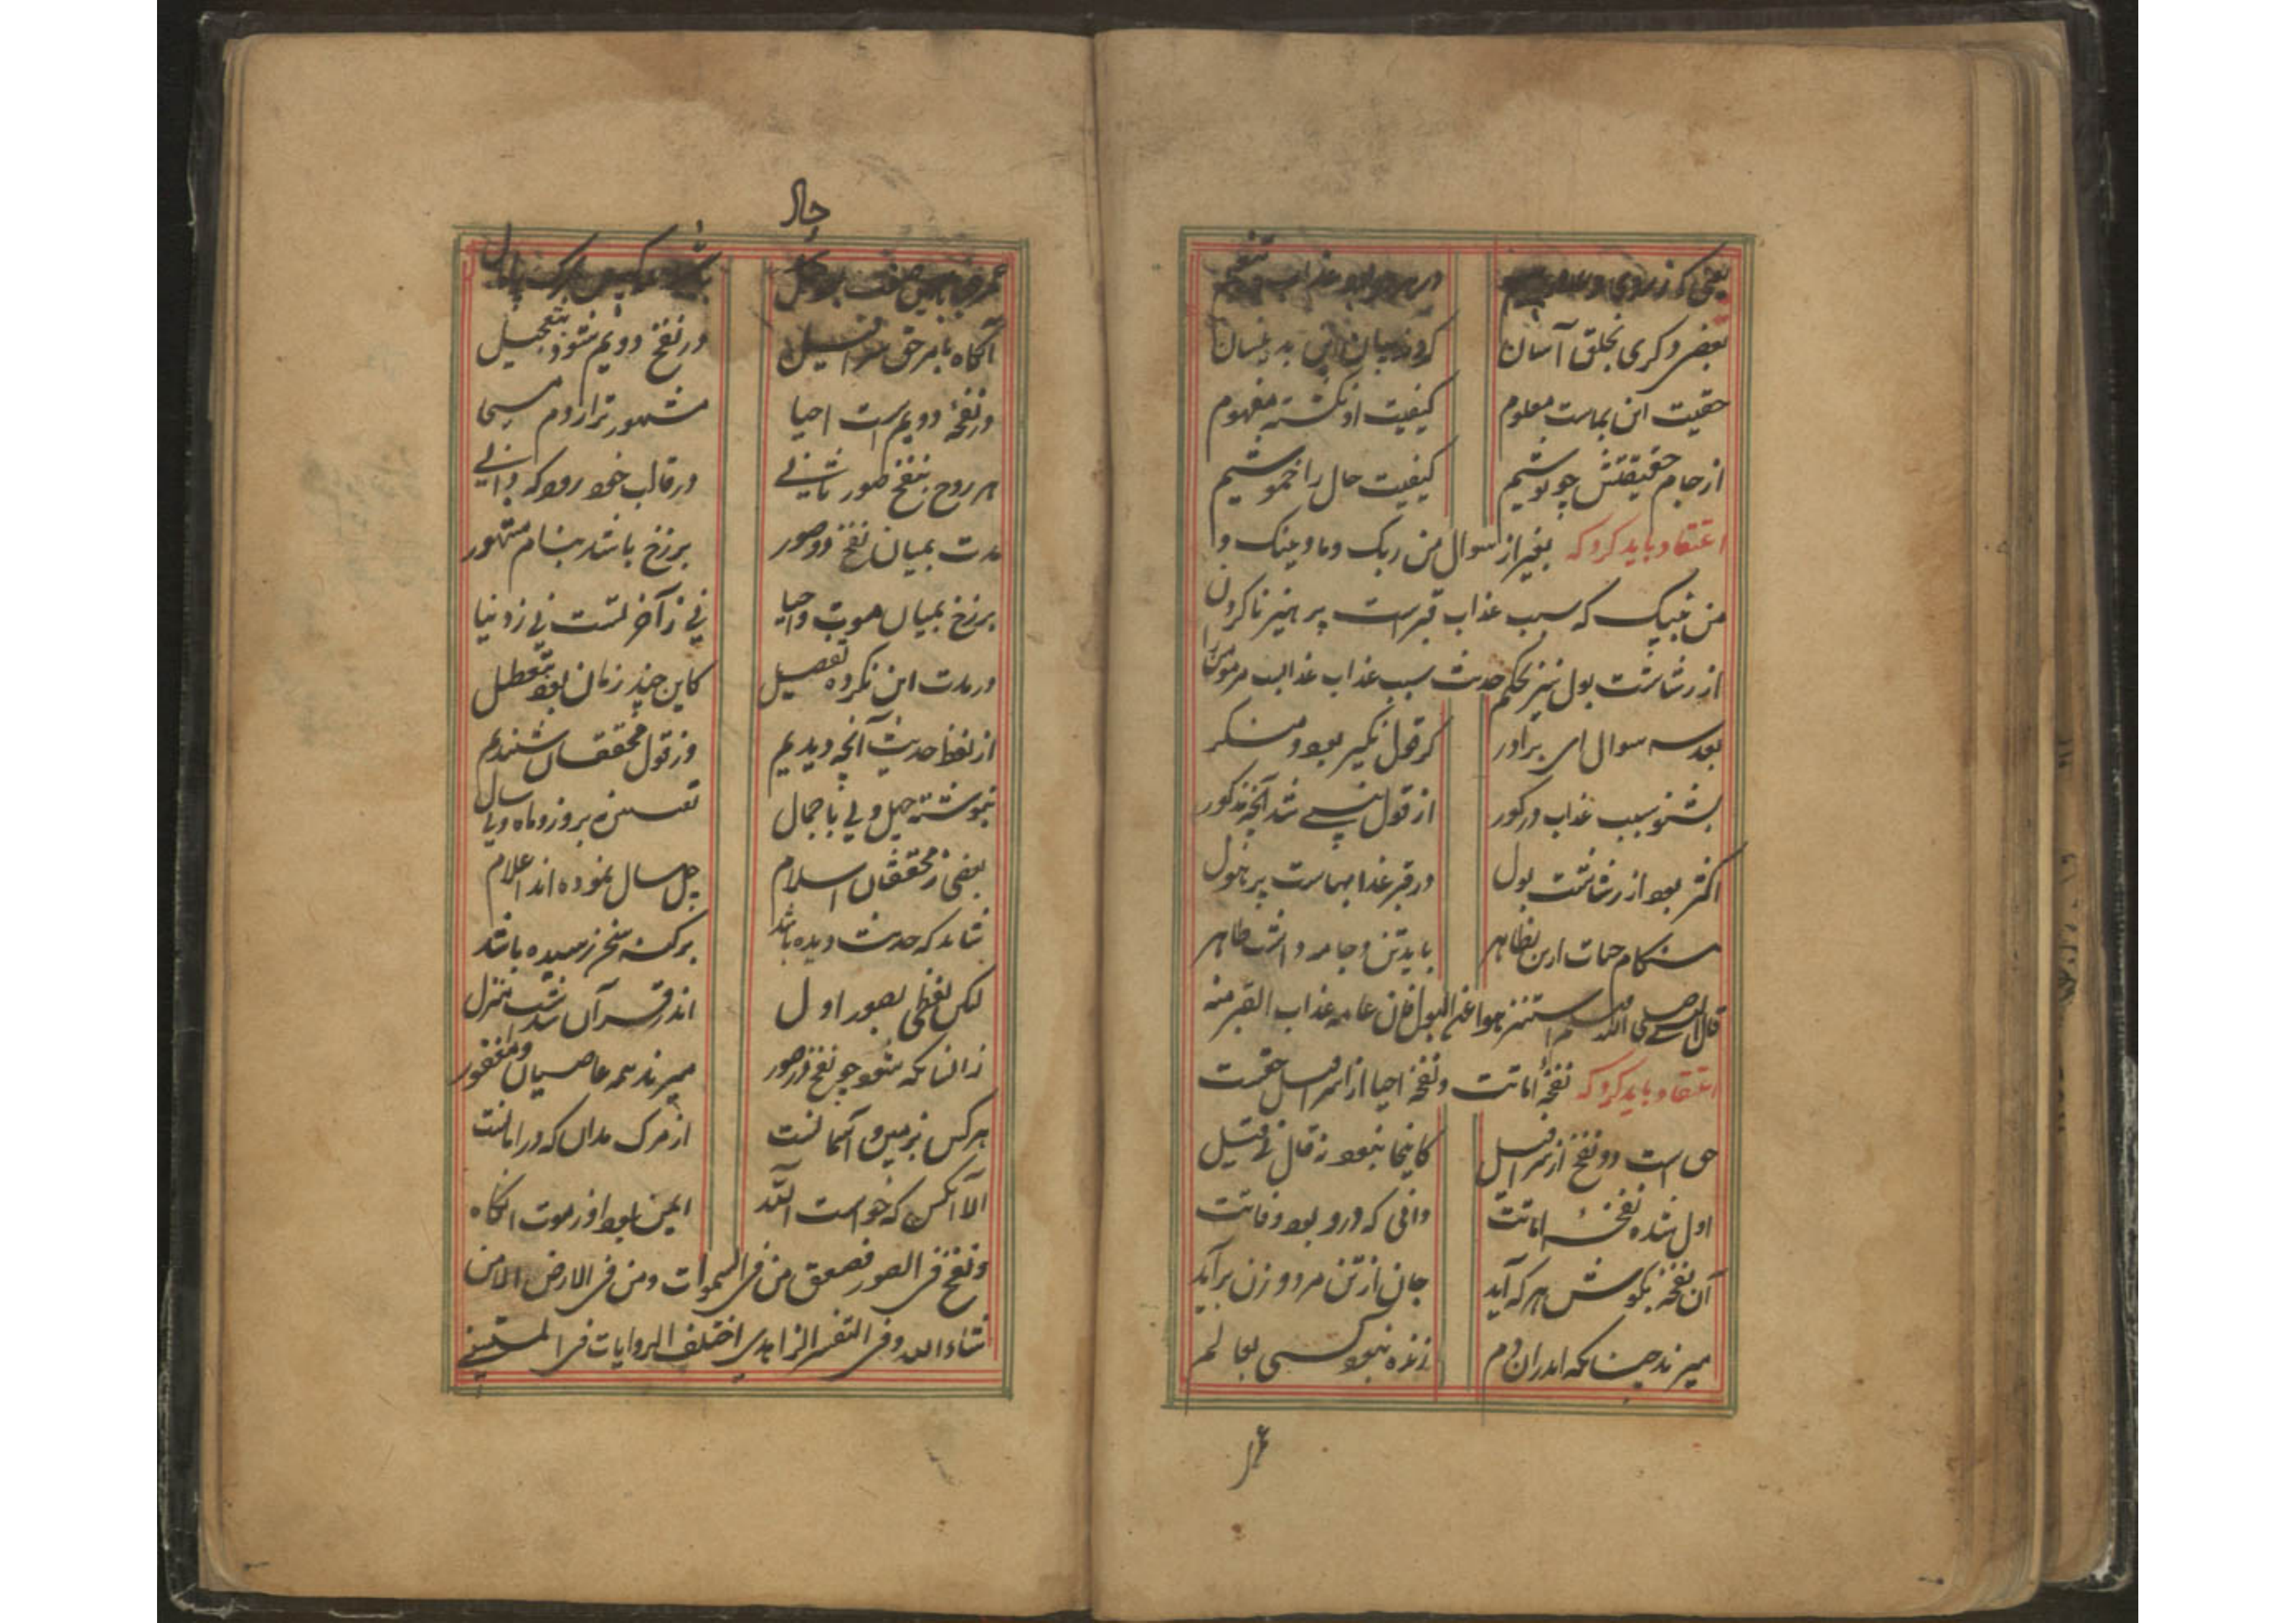 یعنی که ز روی
بعضی دگری بخلق آسان
کردند بیان این بدینسان
حقیت این بماست معلوم
کیفیت او نگشته مفهوم
از جام حقیقتش چو نوشیم
کیفیت حال را خموشیم
اعتقاد باید کرد که بغیر از سوال من ربک وما دینک و
من نبیک که سبب عذاب قبر است پرهیز ناکردن
از رشاشت بول نیز بحکم حدیث سبب عذاب مر مومن را
بعد سه سوال ای برادر
کز قول نکیر بود و منکر
بشنو سبب عذاب در کور
از قول نبی شد آنچه مذکور
اکثر بود از رشاشت بول
در قبر عذابهاست پر هول
باید تن و جامه داشت طاهر
قال النبی صلی الله علیه وسلم استنزهوا عن البول فان عامه عذاب القبر منه
اعتقاد باید کرد که نفخهٔ اماتت و نفخهٔ احیا از اسرافیل حقست
حق است دو نفخ از سرافیل
کاینجا نبود ز قال فی قیل
اول شده نفخهٔ اماتت
دانی که درو بود وفاتت
آن نفخه بکوش هر که آید
جان از تن مرد و زن برآید
میرند چنانکه اندران دم
زنده نبود کسی بعالم
عمر
حال
آنگاه بامر حق سرافیل
در نفخ دویم شود بتعجیل
در نفخهٔ دویم است احیا
مشهور تر از دم مسیحا
هر روح بنفخ صور ثانی
در قالب خود رود که دانی
مدت بمیان نفخ دو صور
برزخ باشد بنام مشهور
برزخ بمیان موت و احیا
نی ز آخرتست نی ز دنیا
در مدت این نکرده تفصیل
کاین چند زمان بود بتعطیل
از لفظ حدیث آنچه دیدیم
وز قول محققان شنیدیم
بنوشته چهل ولی باجمال
تعیین نه بروز و ماه و یا سال
بعضی ز محققان اسلام
چل سال نموده اند اعلام
شاید که حدیث دیده باشد
بر کنه سخن رسیده باشد
لیکن لفظی بصور اول
اندر قرآن شد منزل
زانسانکه شود چو نفخ در صور
میرند همه عاصیان و مغفور
هر کس بزمین و آسمانست
از مرک مدان که در امانست
الا آنکس که خواست الله
ایمن بود او ز موت آنگاه
ونفخ فی الصور فصعق من فی السموات ومن فی الارض الا من
شاء الله وفی التفسیر الزاهدی اختلف الروایات فی المستثنی